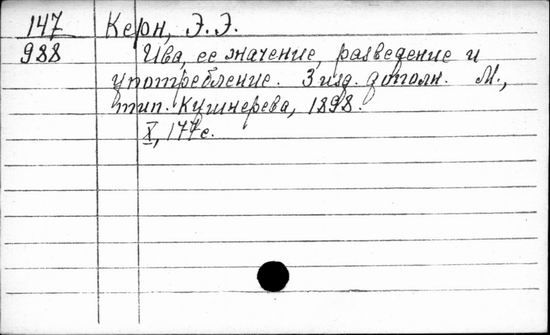 147 Керн, Э.Э.
988 Ива, ее значение, разведение и
употребление. 3 изд. дополн. М.,
тип. Кушнерева, 1898.
X, 177 с.